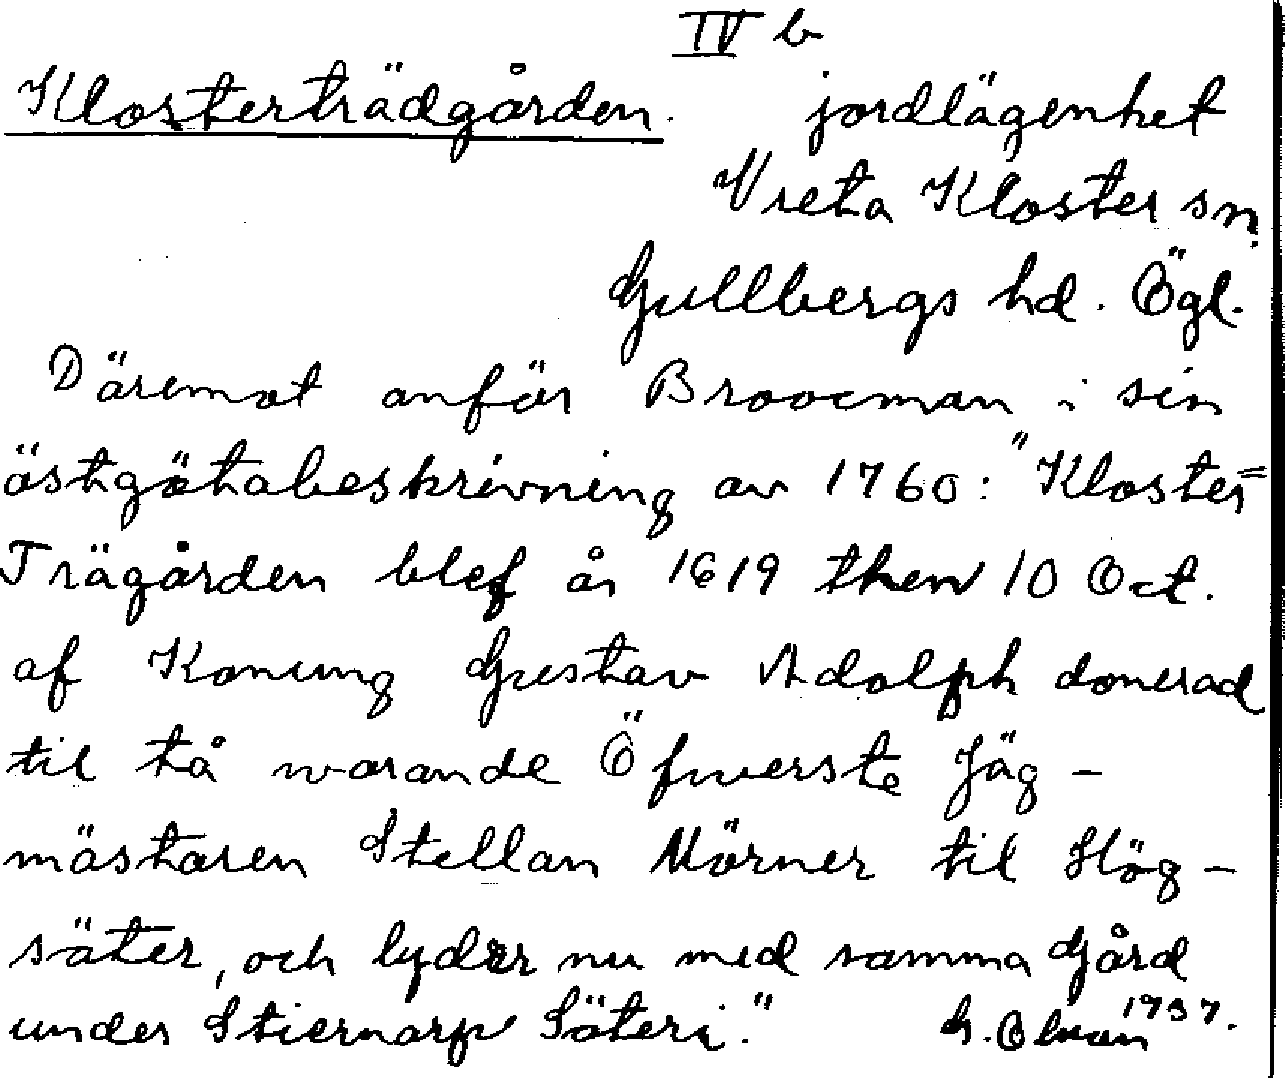 IV b
Klosterträdgården. jordlägenhet
Vreta Kloster sn.
Gullbergs hd. Ögl.
Däremot anför Broocman i sin
östgötabeskrivning av 1760: "Kloster=
Trägården blef år 1619 then 10 Oct.
af Konung Gustav Adolph donerad
til tå warande Öfwerste Jäg-
mästaren Stellan Mörner til Hög-
säter, och lyder nu med samma Gård
under Stiernarp Säteri." G. 1937.